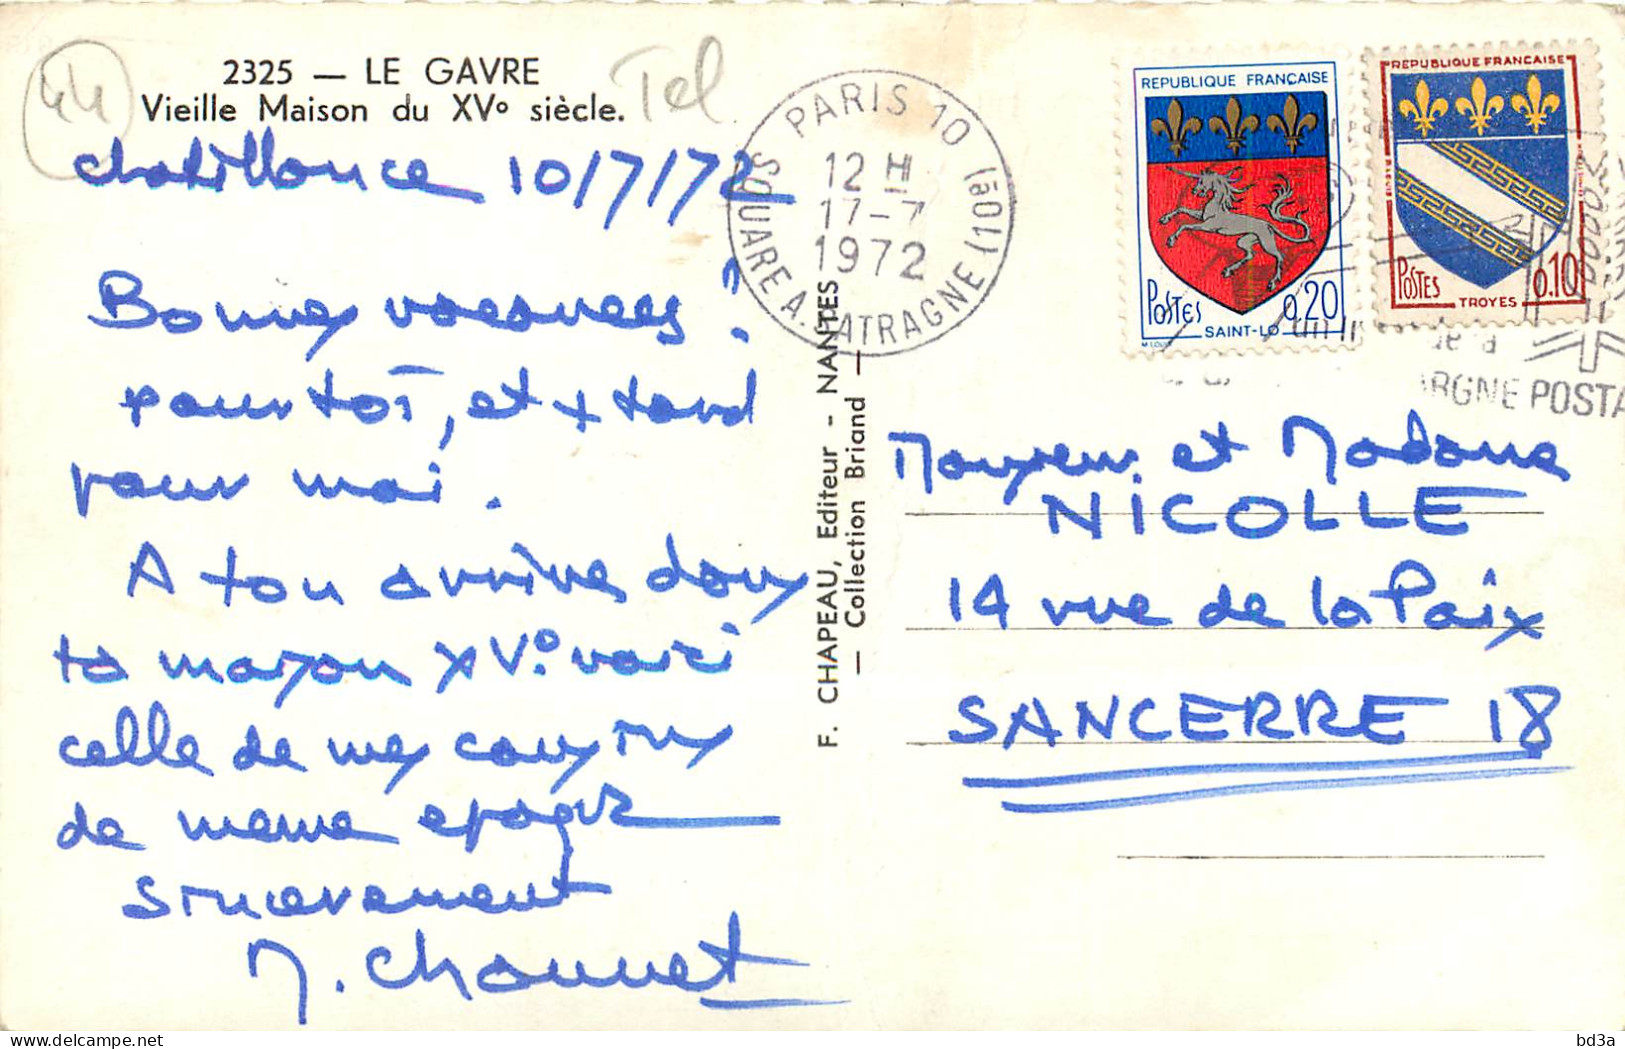 44
2325 — LE GAVRE
Vieille Maison du XVº siècle.
Tel
10/7/72
Bonnes vacances !
pour toi, et + tard
pour moi.
A ton arrivée dans
ta maison XVº voici
celle de mes cousins
de meme epoque
Sincerement
M. Chonnet
F. CHAPEAU, Editeur - NANTES
— Collection Briand —
PARIS 10
12 H
17-7
1972
SQUARE A. SATRAGNE (10è)
REPUBLIQUE FRANÇAISE
POSTES
0,20
SAINT-LO
REPUBLIQUE FRANÇAISE
POSTES
0,10
TROYES
de la
ARGNE POSTA
Monsieur et Madame
NICOLLE
14 rue de la Paix
SANCERRE 18
bd3a